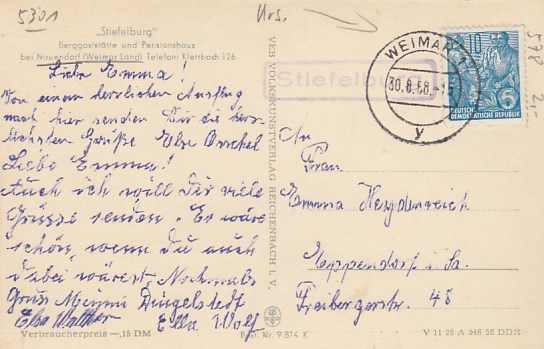 5301
Urs.
„Stiefelburg"
Berggaststätte und Pensionshaus
bei Nauendorf (Weimar Land) Telefon: Klettbach 126
Liebe Emma!
Von einem herrlichen Ausflug
nach hier senden Dir die herz-
lichsten Grüße Else
Liebe Emma!
Auch ich will Dir viele
Grüsse senden. Es wäre
schön, wenn Du auch
dabei wärest. Nochmals
Gruss Dingelstedt
Elsa Walther Ella Wolf
Verbraucherpreis —,15 DM
Best. Nr. 9 814 K
VEB VOLKSKUNSTVERLAG REICHENBACH I. V.
Stiefelburg
WEIMAR 1
30.8.58
y
10
DEUTSCHE
DEMOKRATISCHE REPUBLIK
578
An
Frau
Emma Heydenreich
Eppendorf i. Sa.
Freibergerstr. 48
V 11 28 A 246 58 DDR